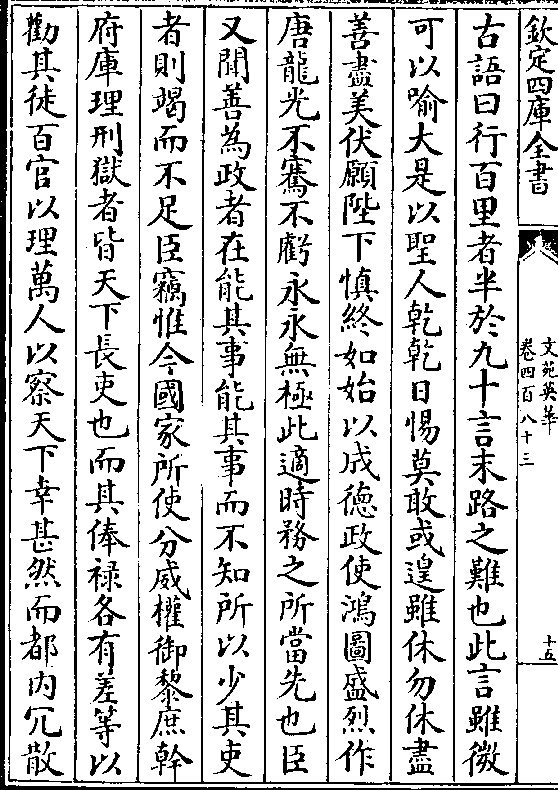 欽定四庫全書
文苑英華
卷四百八十三
十五
古語曰行百里者半於九十言末路之難也此言雖微
可以喻大是以聖人乾乾日惕莫敢或遑雖休勿休盡
善盡美伏願陛下慎終如始以成德政使鴻圖盛烈作
唐龍光不騫不虧永永無極此適時務之所當先也臣
又聞善為政者在能其事能其事而不知所以少其吏
者則竭而不足臣竊惟今國家所使分威權御黎庶幹
府庫理刑獄者皆天下長吏也而其俸禄各有差等以
勸其徒百官以理萬人以察天下幸甚然而都内冗散